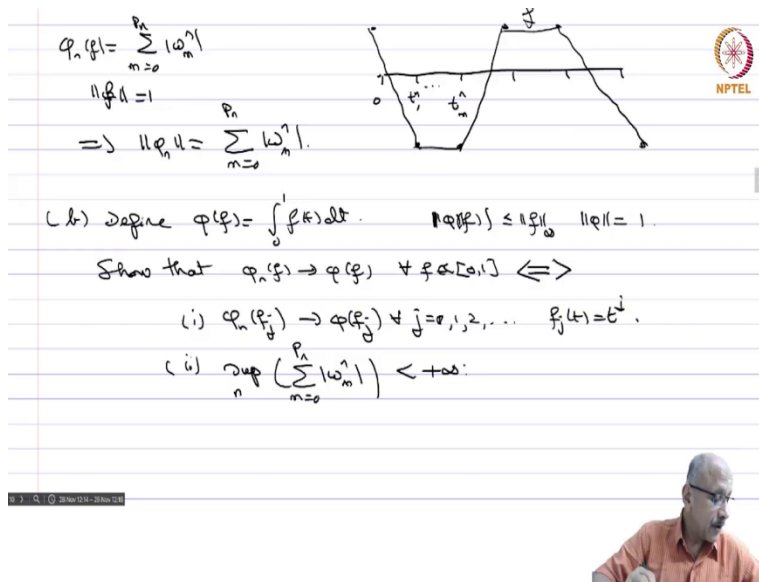 φ_n(f) = Σ_{m=0}^{p_n} |ω_m^n|
‖f‖ = 1
⇒ ‖φ_n‖ = Σ_{m=0}^{p_n} |ω_m^n|.
f
0 t_1^n ... t_m^n
NPTEL
(b) Define φ(f) = ∫_0^1 f(t) dt. |φ(f)| ≤ ‖f‖_∞ ‖φ‖ = 1.
Show that φ_n(f) → φ(f) ∀ f ∈ [0,1] ⟺
(i) φ_n(f_j) → φ(f_j) ∀ j = 0, 1, 2, ... f_j(t) = t^j.
(ii) sup_n (Σ_{m=0}^{p_n} |ω_m^n|) < +∞.